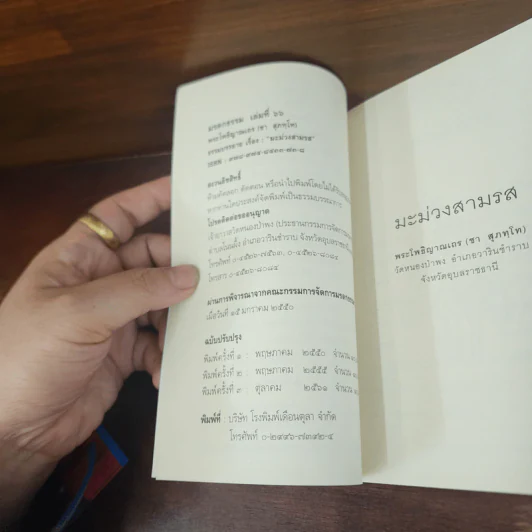 มรดกธรรม เล่มที่ ๖๖
พระโพธิญาณเถร (ชา สุภทฺโท)
ธรรมบรรยาย เรื่อง : "มะม่วงสามรส"
ISBN :
สงวนลิขสิทธิ์
ห้ามคัดลอก ตัดตอน หรือนำไปพิมพ์โดยไม่ได้รับ
หากท่านใดประสงค์จัดพิมพ์เป็นธรรมบรรณาการ
โปรดติดต่อขออนุญาต
เจ้าอาวาสวัดหนองป่าพง (ประธานกรรมการการจัดการ
อำเภอวารินชำราบ จังหวัดอุบลราชธานี
โทรศัพท์
โทรสาร
ผ่านการพิจารณาจากคณะกรรมการการจัดการมรดกธรรม
เมื่อวันที่ ๑๕ มกราคม ๒๕๕๐
ฉบับปรับปรุง
พิมพ์ครั้งที่ ๑ : พฤษภาคม ๒๕๕๐ จำนวน
พิมพ์ครั้งที่ ๒ : พฤษภาคม ๒๕๕๕ จำนวน
พิมพ์ครั้งที่ ๓ : ตุลาคม ๒๕๖๑ จำนวน
พิมพ์ที่ : บริษัท โรงพิมพ์เดือนตุลา จำกัด
โทรศัพท์ ๐-๒๙๙๖-๗๓๙๒-๔
มะม่วงสามรส
พระโพธิญาณเถร (ชา สุภทฺโท)
วัดหนองป่าพง อำเภอวารินชำราบ
จังหวัดอุบลราชธานี